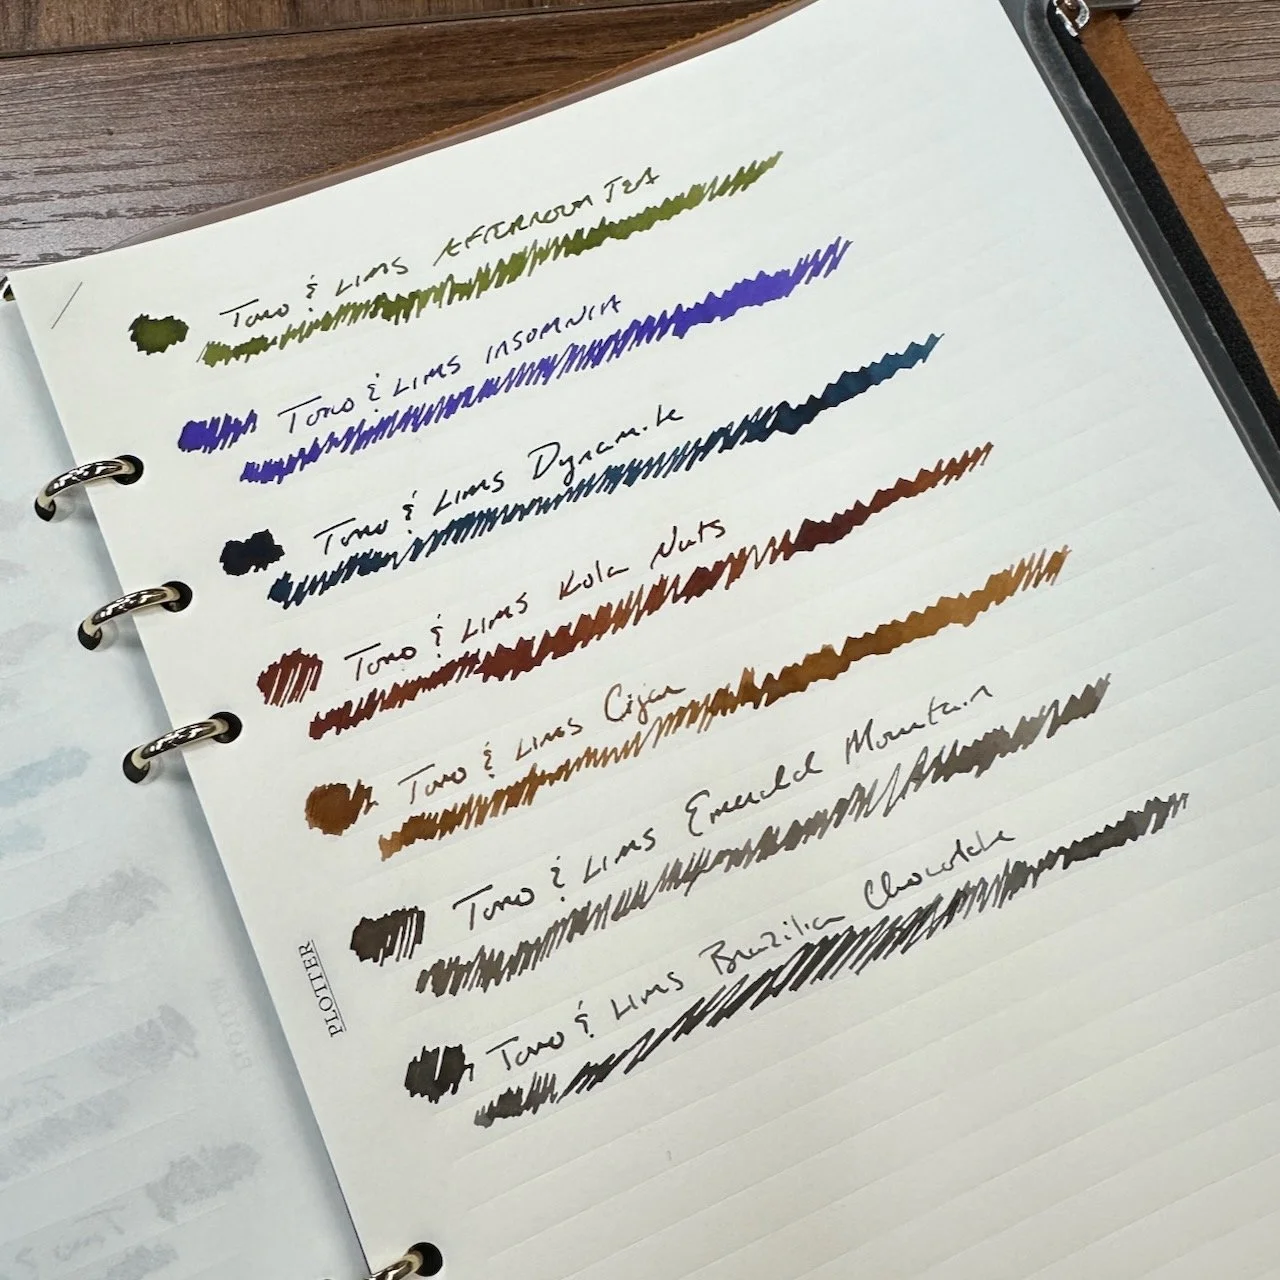 Tono & Lims AFTERNOON TEA
Tono & Lims INSOMNIA
Tono & Lims Dynamite
Tono & Lims Kola Nuts
Tono & Lims Cigar
Tono & Lims Emerald Mountain
Tono & Lims Brazilian Chocolate
PLOTTER